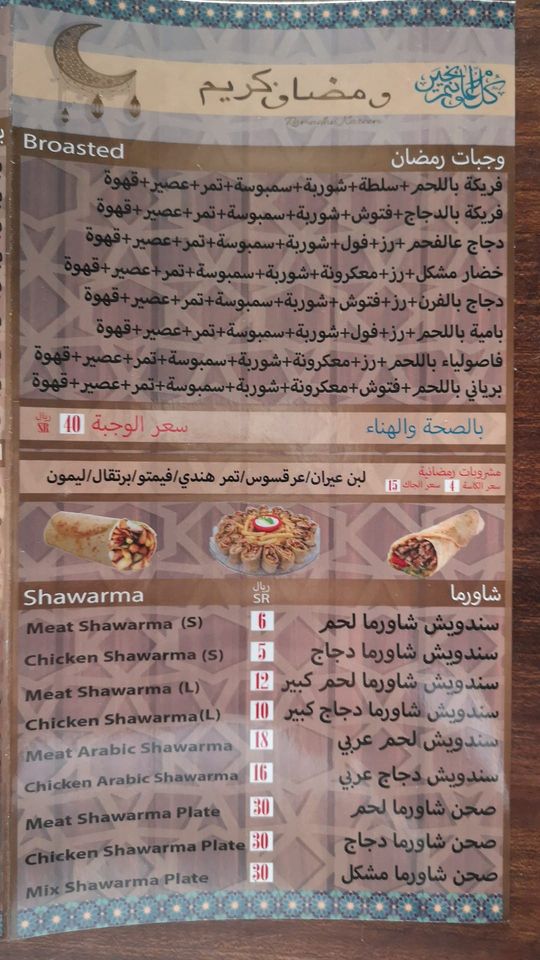 كل عام وأنتم بخير
رمضان كريم
Ramadan Kareem
Broasted وجبات رمضان
فريكة باللحم+سلطة+شوربة+سمبوسة+تمر+عصير+قهوة
فريكة بالدجاج+فتوش+شوربة+سمبوسة+تمر+عصير+قهوة
دجاج عالفحم+رز+فول+شوربة+سمبوسة+تمر+عصير+قهوة
خضار مشكل+رز+معكرونة+شوربة+سمبوسة+تمر+عصير+قهوة
دجاج بالفرن+رز+فتوش+شوربة+سمبوسة+تمر+عصير+قهوة
بامية باللحم+رز+فول+شوربة+سمبوسة+تمر+عصير+قهوة
فاصولياء باللحم+رز+معكرونة+شوربة+سمبوسة+تمر+عصير+قهوة
برياني باللحم+فتوش+معكرونة+شوربة+سمبوسة+تمر+عصير+قهوة
بالصحة والهناء سعر الوجبة 40 ريال SR
مشروبات رمضانية
سعر الكاسة 4 سعر الجاك 15
لبن عيران/عرقسوس/تمر هندي/فيمتو/برتقال/ليمون
Shawarma ريال SR شاورما
Meat Shawarma (S) 6 سندويش شاورما لحم
Chicken Shawarma (S) 5 سندويش شاورما دجاج
Meat Shawarma (L) 12 سندويش شاورما لحم كبير
Chicken Shawarma(L) 10 سندويش شاورما دجاج كبير
Meat Arabic Shawarma 18 سندويش لحم عربي
Chicken Arabic Shawarma 16 سندويش دجاج عربي
Meat Shawarma Plate 30 صحن شاورما لحم
Chicken Shawarma Plate 30 صحن شاورما دجاج
Mix Shawarma Plate 30 صحن شاورما مشكل